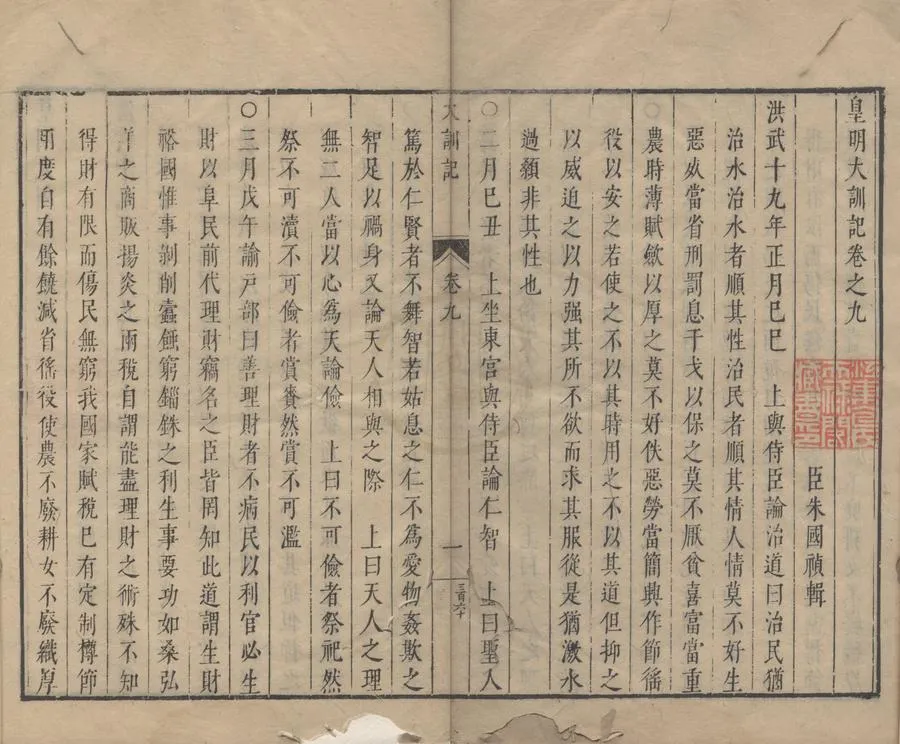 皇明大訓記卷之九
臣朱國禎輯
洪武十九年正月巳巳　上與侍臣論治道曰治民猶
治水治水者順其性治民者順其情人情莫不好生
惡死當省刑罰息干戈以保之莫不厭貧喜富當重
農時薄賦斂以厚之莫不好佚惡勞當簡興作節徭
役以安之若使之不以其時用之不以其道但抑之
以威迫之以力強其所不欲而求其服從是猶激水
過顙非其性也
○二月巳丑　上坐東宮與侍臣論仁智　上曰聖人
大訓記　卷九　一　三百六十
篤於仁賢者不舞智若姑息之仁不爲愛物姦欺之
智足以禍身又論天人相與之際　上曰天人之理
無二人當以心爲天論儉　上曰不可儉者祭祀然
祭不可瀆不可儉者賞賚然賞不可濫
○三月戊午諭戸部曰善理財者不病民以利官必生
財以阜民前代理財竊名之臣皆罔知此道謂生財
裕國惟事剝削蠹蝕窮錙銖之利生事要功如桑弘
羊之商販揚炎之兩稅自謂能盡理財之術殊不知
得財有限而傷民無窮我國家賦稅巳有定制樽節
用度自有餘饒減省徭役使農不廢耕女不廢織厚